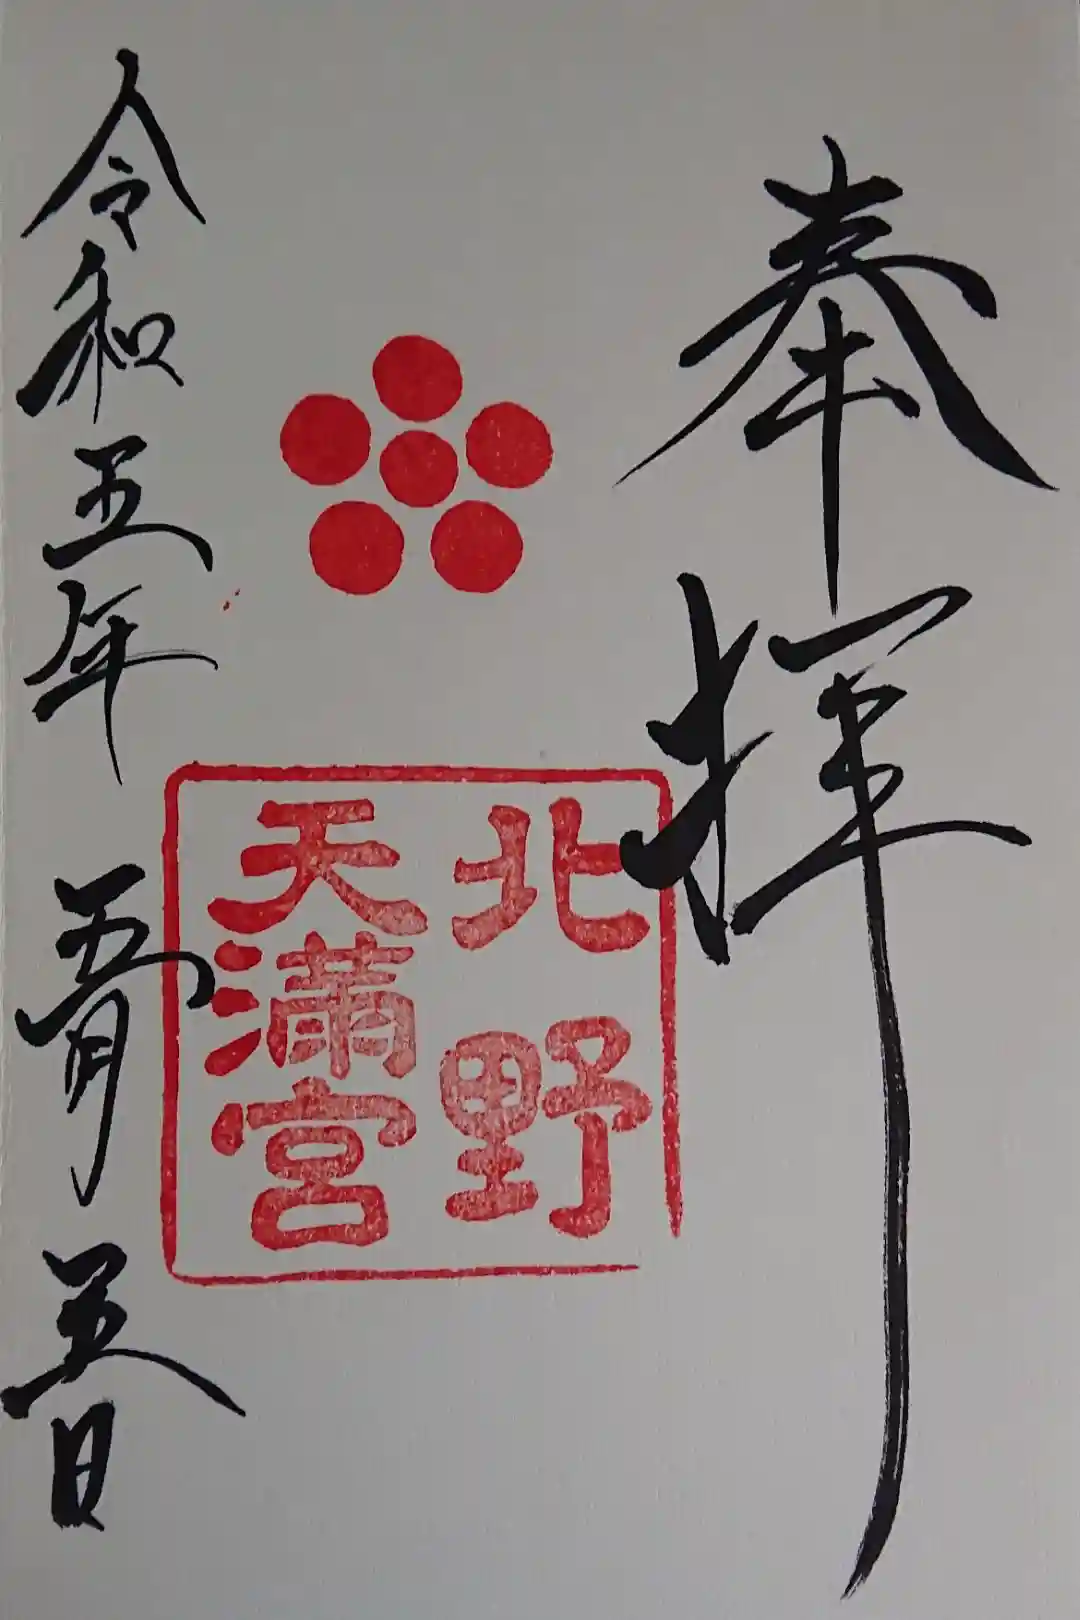 奉拝
北野
天満宮
令和五年五月五日